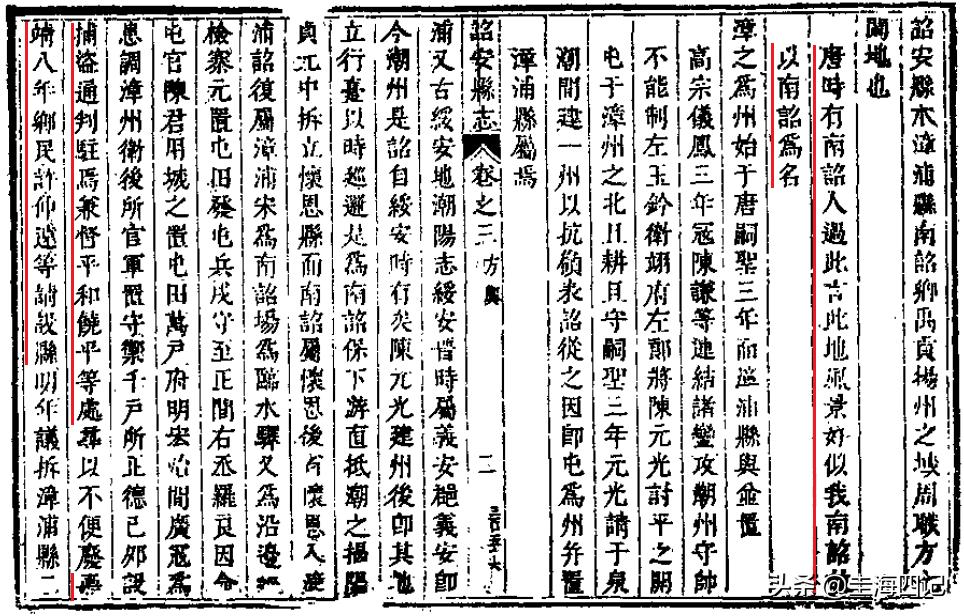 詔安縣本漳浦縣南詔鄉禹貢揚州之域周職方
閩地也
唐時有南詔人過此言此地風景好似我南詔
以南詔爲名
漳之爲州始于唐嗣聖三年而漳浦縣與並置
高宗儀鳳三年冦陳謙等連結諸蠻攻潮州守帥
不能制左玉鈐衛翊府左郎將陳元光討平之開
屯于漳州之北且耕且守嗣聖三年元光請于泉
潮間建一州以抗嶺表詔從之因即屯爲州并置
漳浦縣屬焉
詔安縣志 卷之三 方輿 二
浦又古綏安地潮陽志綏安晋時屬義安郡義安即
今潮州是詔自綏安時有矣陳元光建州後即其地
立行臺以時巡邏是爲南詔保下游直抵潮之揭陽
貞元中拆立懷恩縣而南詔屬懷恩後省懷恩入漳
浦詔復屬漳浦宋爲南詔場爲臨水驛又爲沿邊
檢寨元置屯田發屯兵戍守至正間右丞羅良因令
屯官陳君用城之置屯田萬戸府明宏治間廣冦爲
患調漳州衛後所官軍置守禦千戸所正德已夘設
捕盜通判駐焉兼督平和饒平等處尋以不便廢嘉
靖八年鄉民許仲遠等請設縣明年議拆漳浦縣二
头条 @圭海四记